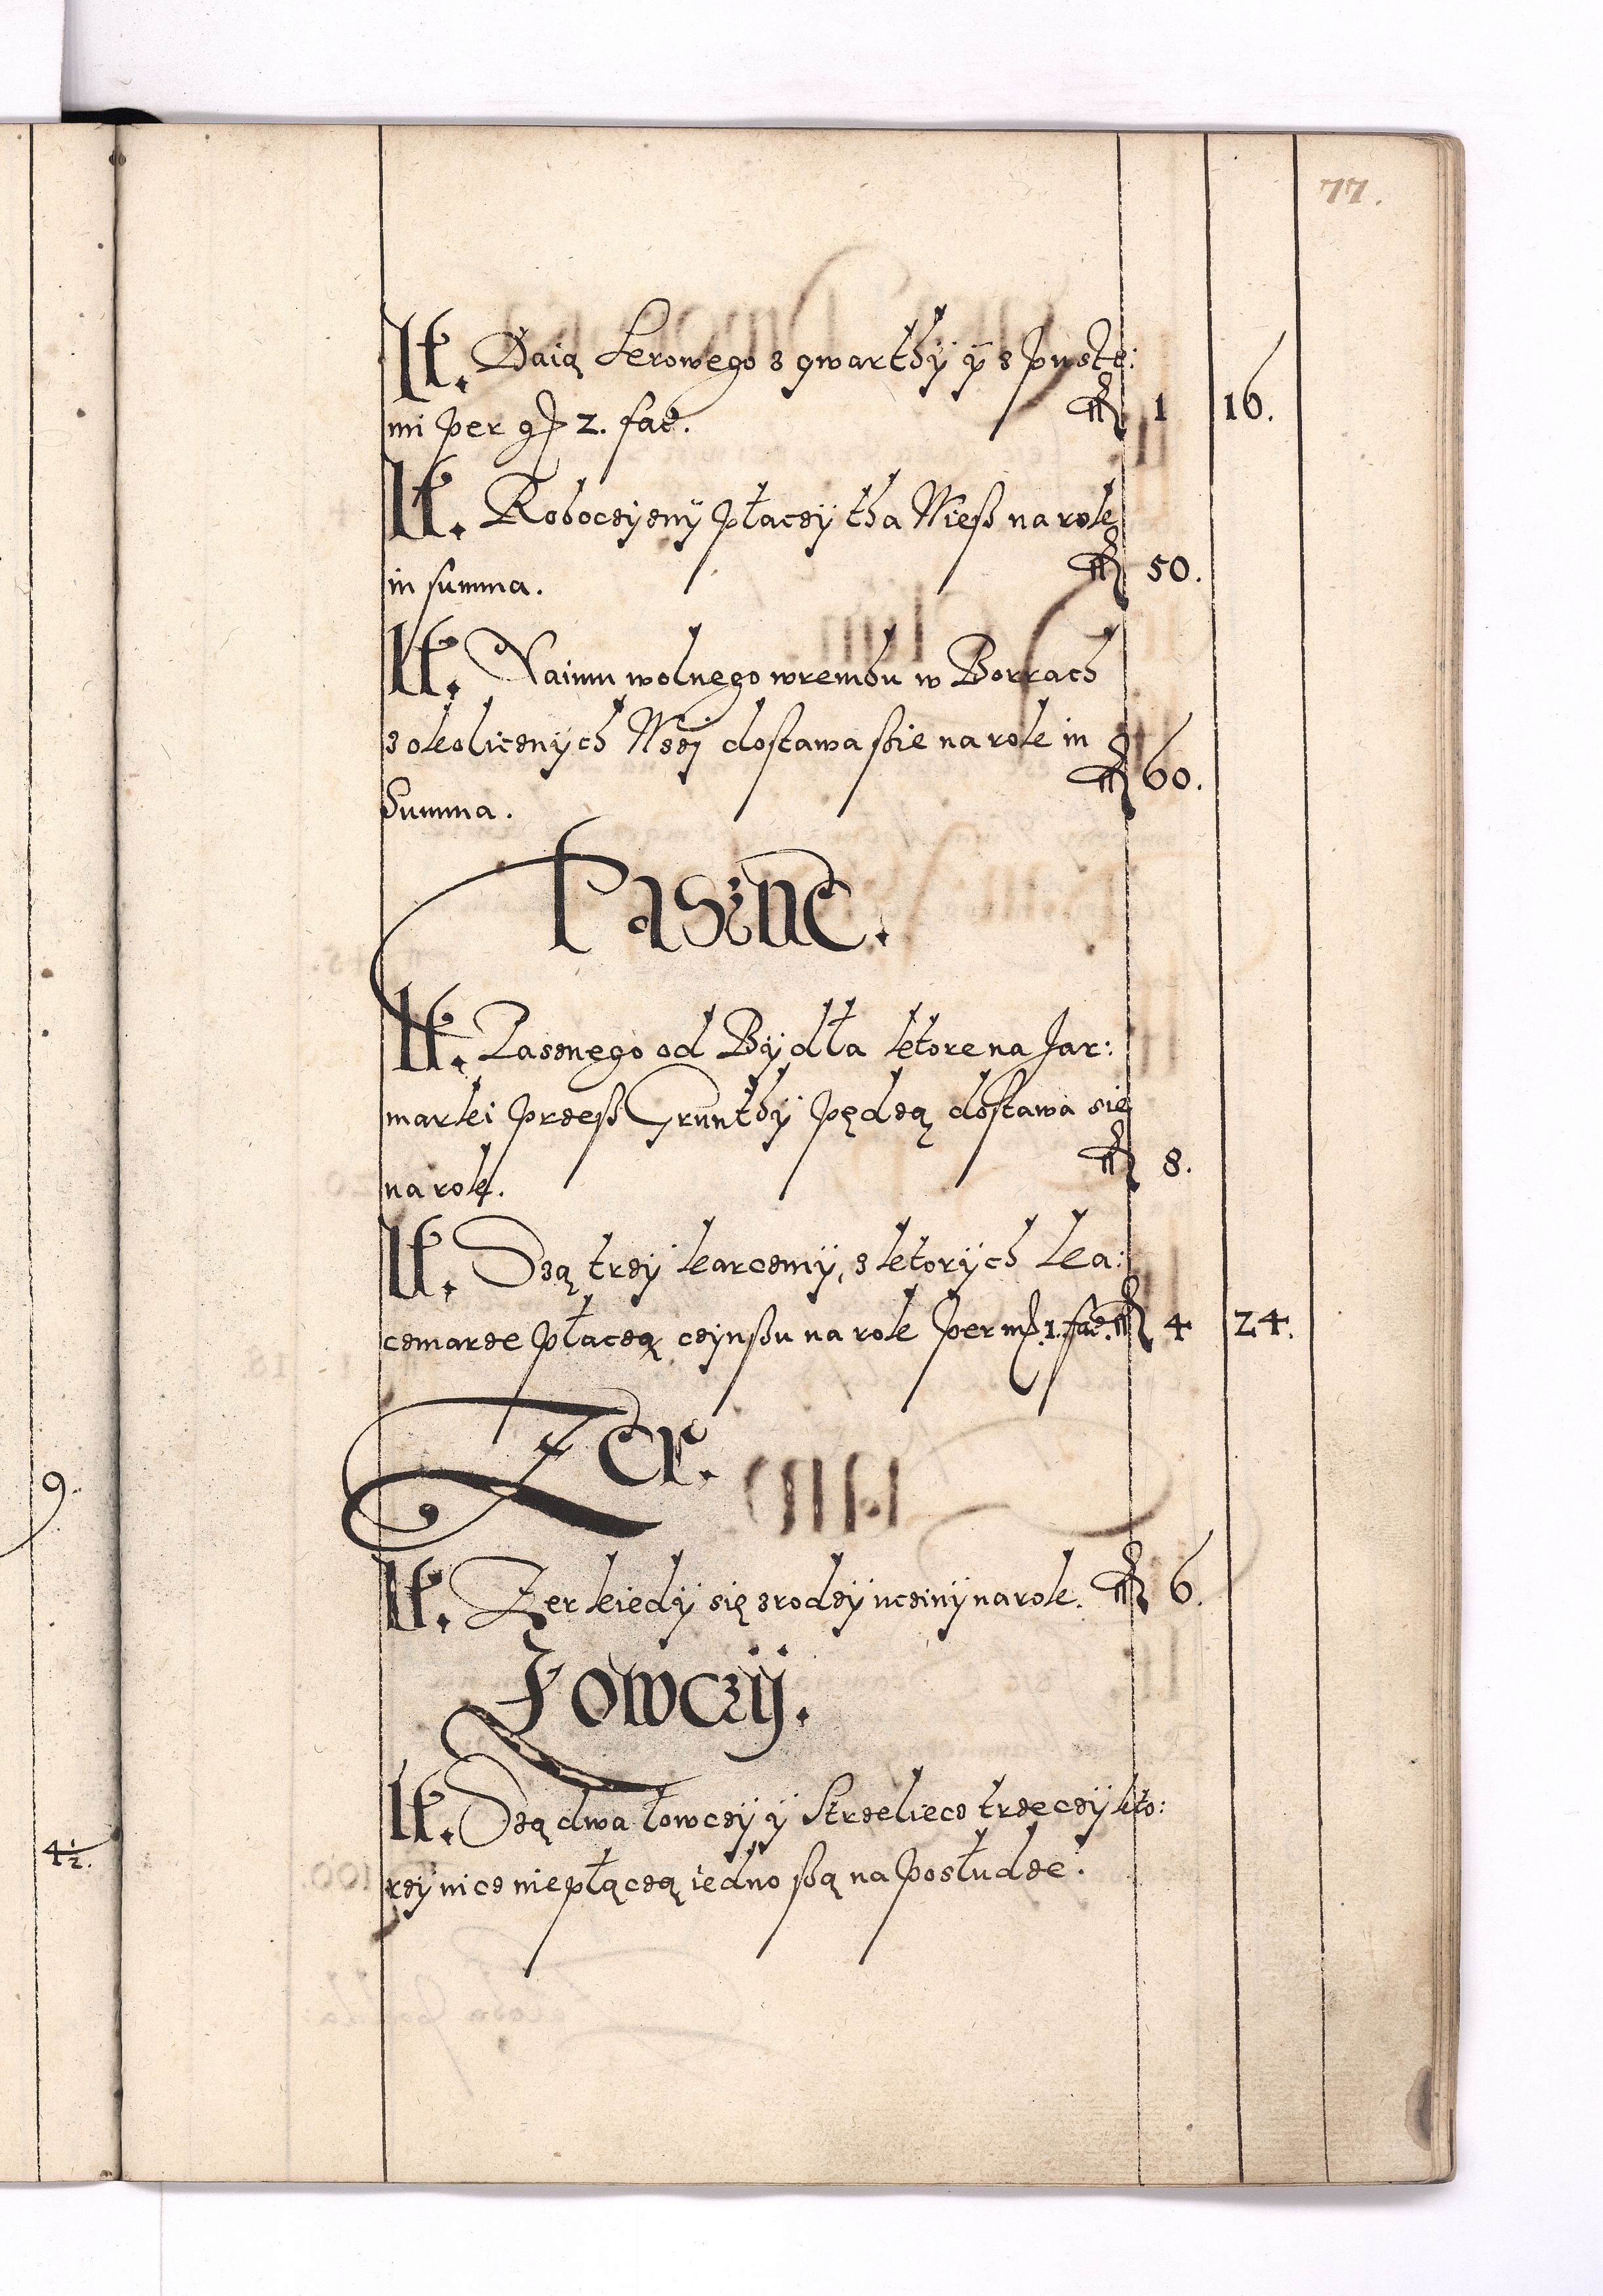 77.
It. Daią Serowego z gwarthÿ ÿ z puste:
mi per gſ 2. fac. mſ 1 16.
It. Roboczizny płaczÿ tha Wieß na rok
in summa. mſ 50.
It. Naimu wolnego wrembu w Borrach
z okolicznÿch Wsÿ dostawa ßie na rok in
Summa. mſ 60.
Paszne.
It. Pasznego od Bÿdła ktore na Jar:
marki przeß Grunthÿ pędzą dostawa się
na rok. mſ 8.
It. Są trzÿ karczmÿ, z ktorÿch ka:
czmarze płaczą czÿnßu na rok per mſ. 1. fac. mſ 4 24.
Zer.
It. Zer kiedÿ się zrodzÿ ucziny na rok. mſ 6.
Łowczÿ.
It. Są dwa łowczÿ ÿ Strzeliecz trzeczÿ kto:
rzÿ nicz niepłączą iedno ßą na posłudze.
9.
4½.